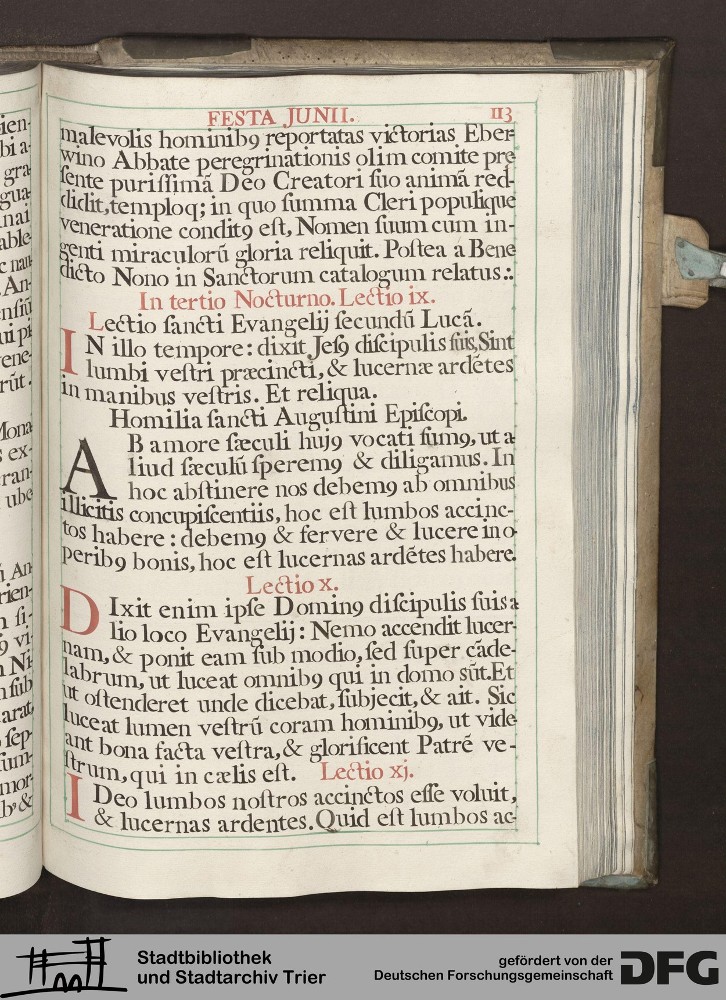 FESTA JUNII. 113
malevolis hominibꝯ reportatas victorias Eber-
wino Abbate peregrinationis olim comite pre
ſente puriſſimã Deo Creatori ſuo animã red-
didit, temploq; in quo ſumma Cleri populique
veneratione conditꝯ eſt, Nomen ſuum cum in-
genti miraculorũ gloria reliquit. Poſtea a Bene
dicto Nono in Sanctorum catalogum relatus:.
In tertio Nocturno. Lectio ix.
Lectio ſancti Evangelij ſecundũ Lucã.
IN illo tempore: dixit Jeſꝯ diſcipulis ſuis, Sint
lumbi veſtri præcincti, & lucernæ ardẽtes
in manibus veſtris. Et reliqua.
Homilia ſancti Auguſtini Epiſcopi.
AB amore ſæculi hujꝯ vocati ſumꝯ, ut a
liud ſæculũ ſperemꝯ & diligamus. In
hoc abſtinere nos debemꝯ ab omnibus
illicitis concupiſcentiis, hoc eſt lumbos accinc-
tos habere: debemꝯ & fervere & lucere in o
peribꝯ bonis, hoc eſt lucernas ardẽtes habere.
Lectio x.
DIxit enim ipſe Dominꝯ diſcipulis ſuis a
lio loco Evangelij: Nemo accendit lucer-
nam, & ponit eam ſub modio, ſed ſuper cãde-
labrum, ut luceat omnibꝯ qui in domo sũt. Et
ut oſtenderet unde dicebat, ſubjecit, & ait. Sic
luceat lumen veſtrũ coram hominibꝯ, ut vide
ant bona facta veſtra, & glorificent Patrẽ ve-
ſtrum, qui in cælis eſt. Lectio xj.
IDeo lumbos noſtros accinctos eſſe voluit,
& lucernas ardentes. Quid eſt lumbos ac-
Stadtbibliothek
und Stadtarchiv Trier
gefördert von der
Deutschen Forschungsgemeinschaft
DFG